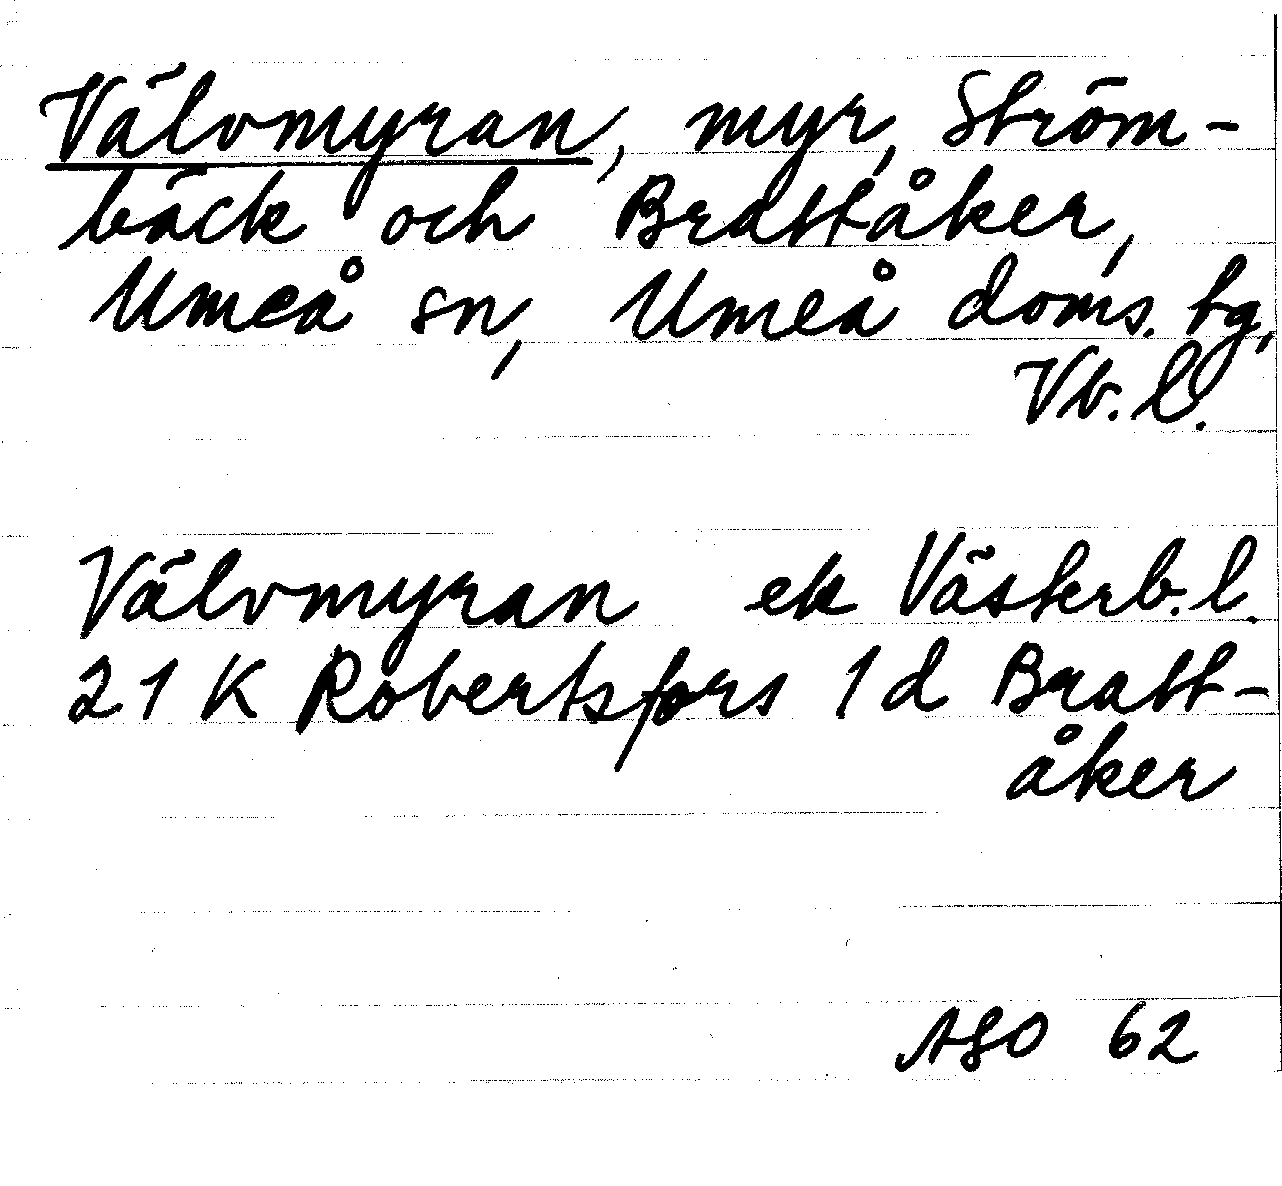 Välvmyran, myr, Ström-
bäck och Brattåker,
Umeå sn, Umeå doms. tg,
Vb. l.
Välvmyran ek Västerb. l.
21 K Robertsfors 1 d Bratt-
åker
ASO 62